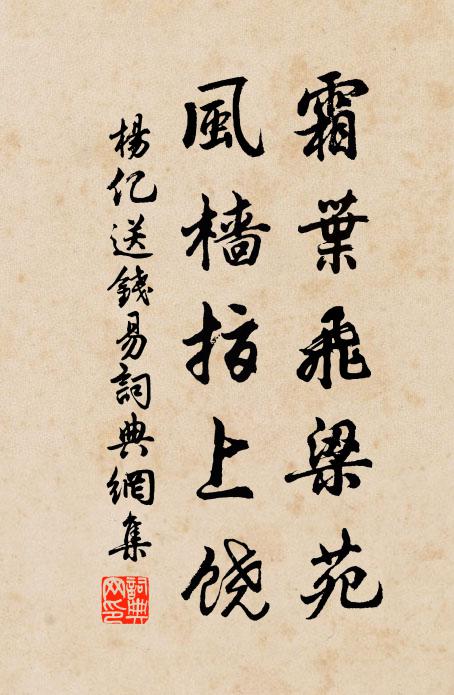 霜葉飛梁苑
風檣指上饶
楊亿送錢易詞典網集
詞典網印